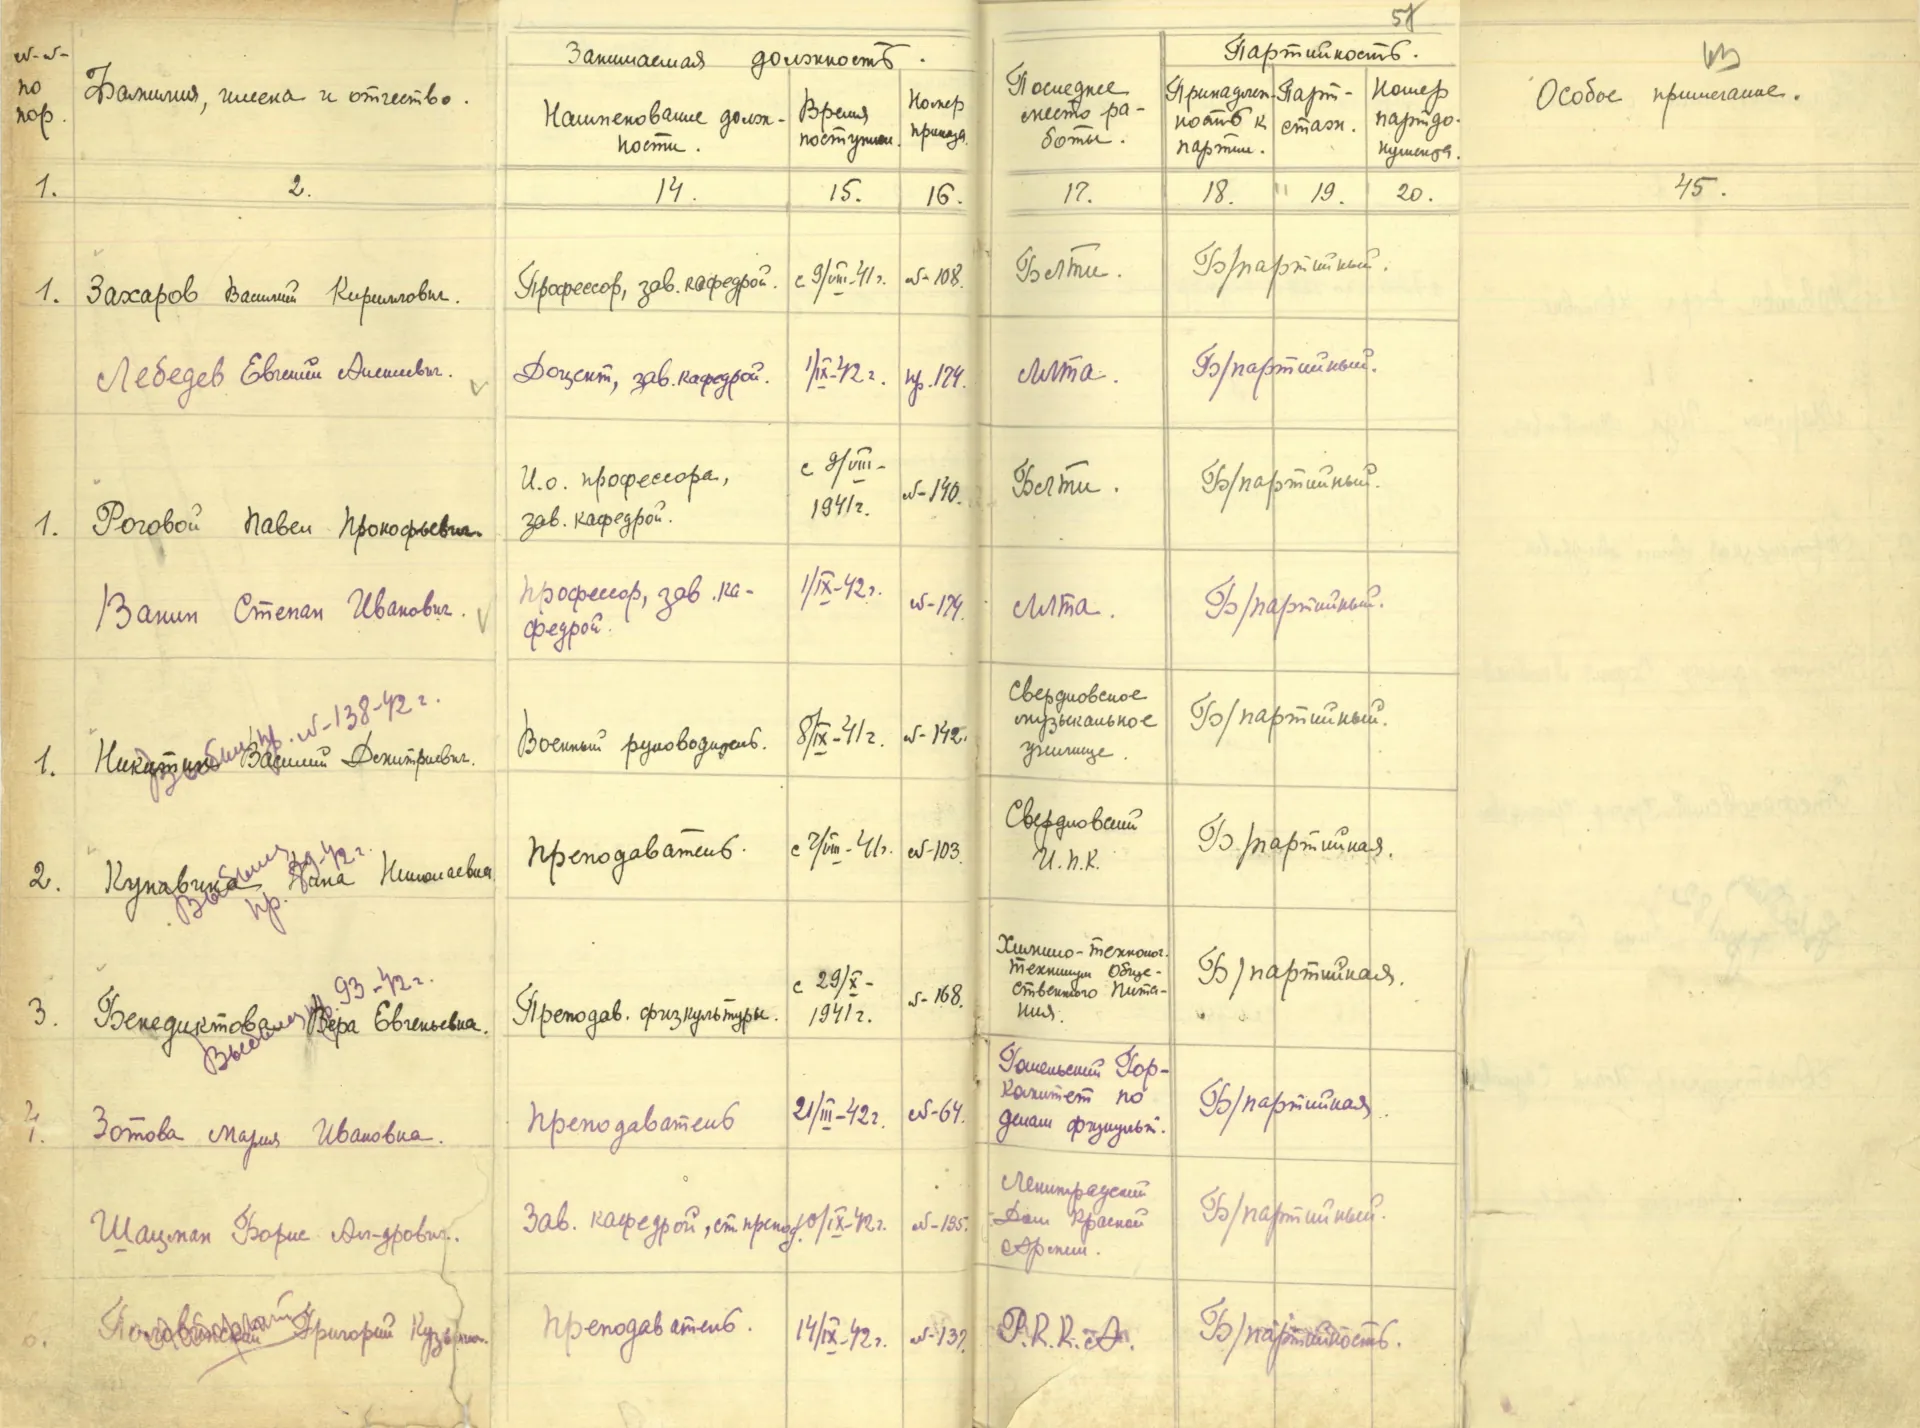 51
№-№-
по
пор.
Фамилия, имена и отчество.
Занимаемая должность.
Наименование долж-
ности.
Время
поступлен.
Номер
приказа
Последнее
место ра-
боты.
Партийность.
Принадлеж-
ность к
партии.
Парт-
стаж.
Номер
партдо-
кумента.
Особое примечание.
1. 2. 14. 15. 16. 17. 18. 19. 20. 45.
1. Захаров Василий Кириллович. Профессор, зав. кафедрой. с 9/VIII-41г. №-108. БЛТИ. Б/партийный.
Лебедев Евгений Алексеевич. Доцент, зав. кафедрой. 1/IX-42г. пр. 174. ЛЛТА. Б/партийный.
1. Роговой Павел Прокофьевич.
И.о. профессора,
зав. кафедрой.
с 9/VIII-
1941г.
№-140. БЛТИ. Б/партийный.
Ванин Степан Иванович.
Профессор, зав. ка-
федрой.
1/IX-42г. №-174. ЛЛТА. Б/партийный.
1. Никитин Василий Дмитриевич.
Выбыл пр. №-138-42г.
Военный руководитель. 8/IX-41г. №-142.
Свердловское
музыкальное
училище.
Б/партийный.
2. Кунавина Анна Николаевна
Выбыла
пр. 39-42г.
Преподаватель. с 7/VIII-41г. №-103.
Свердловский
И.П.К.
Б/партийная.
3. Бенедиктова Вера Евгеньевна.
Выбыла пр. 93-42г.
Преподав. физкультуры.
с 29/X-
1941г.
№-168.
Химико-технолог.
техникум Обще-
ственного Пита-
ния.
Б/партийная.
4. Зотова Мария Ивановна. Преподаватель 21/III-42г. №-64.
Гомельский Гор-
комитет по
делам физкульт.
Б/партийная.
Шацман Борис Ал-дрович. Зав. кафедрой, ст. препод. 10/IX-42г. №-135.
Ленинградский
Дом Красной
Армии.
Б/партийный.
Григорий Кузьмич. Преподаватель. 14/IX-42г. №-137. Р.К.К.А. Б/партийность.